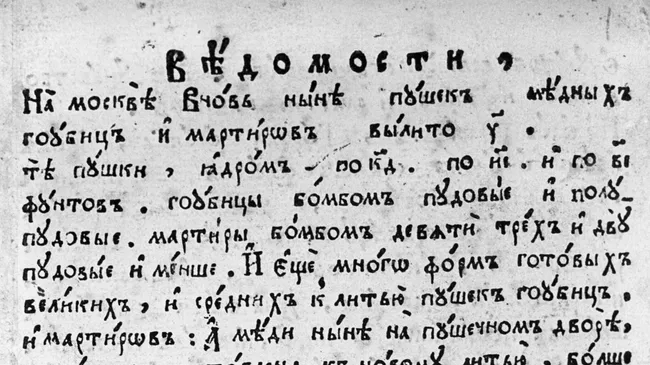 Вѣ́домости,
На̀ москвѐ вно́вь ны́нѣ пу́шекъ мѣ́дныхъ
гоубицъ и҆ марти́рѡвъ вы́лито у҃.
тѣ̀ пу́шки, ꙗ҆дро́мъ по к҃д. по и҃і. и҆ по в҃і
фу́нтовъ. гоубицы бо́мбомъ пудовы́е и҆ полу-
пудовые. марти́ры бо́мбомъ девятѝ тре́хъ и҆ двꙋ
пудовы́е и҆ ме́нше. И҆ е҆щѐ мно́гѡ фо́рмъ готовыхъ
вели́кихъ, и҆ сре́днихъ к̾ литью̀ пу́шекъ гоубицъ,
и҆ марти́рѡвъ: А҆ мѣ́ди ны́нѣ на̀ пу́шечномъ дворѣ̀,
къ но́вому литью̀, бо́лше